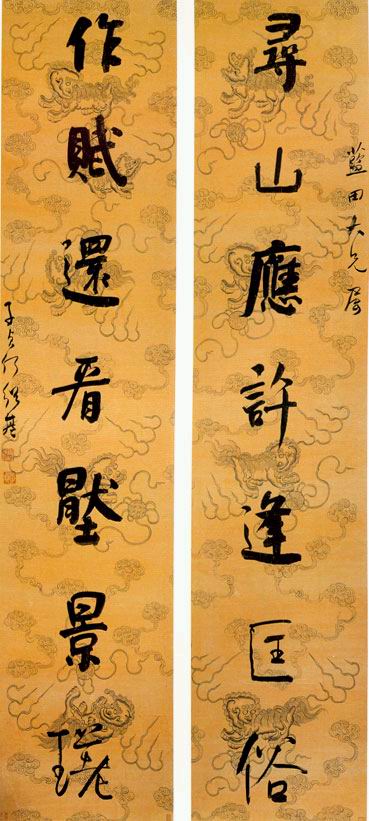 藍田大兄屬
尋山應許逢匡俗
作賦還看壓景瑳
子貞何紹基